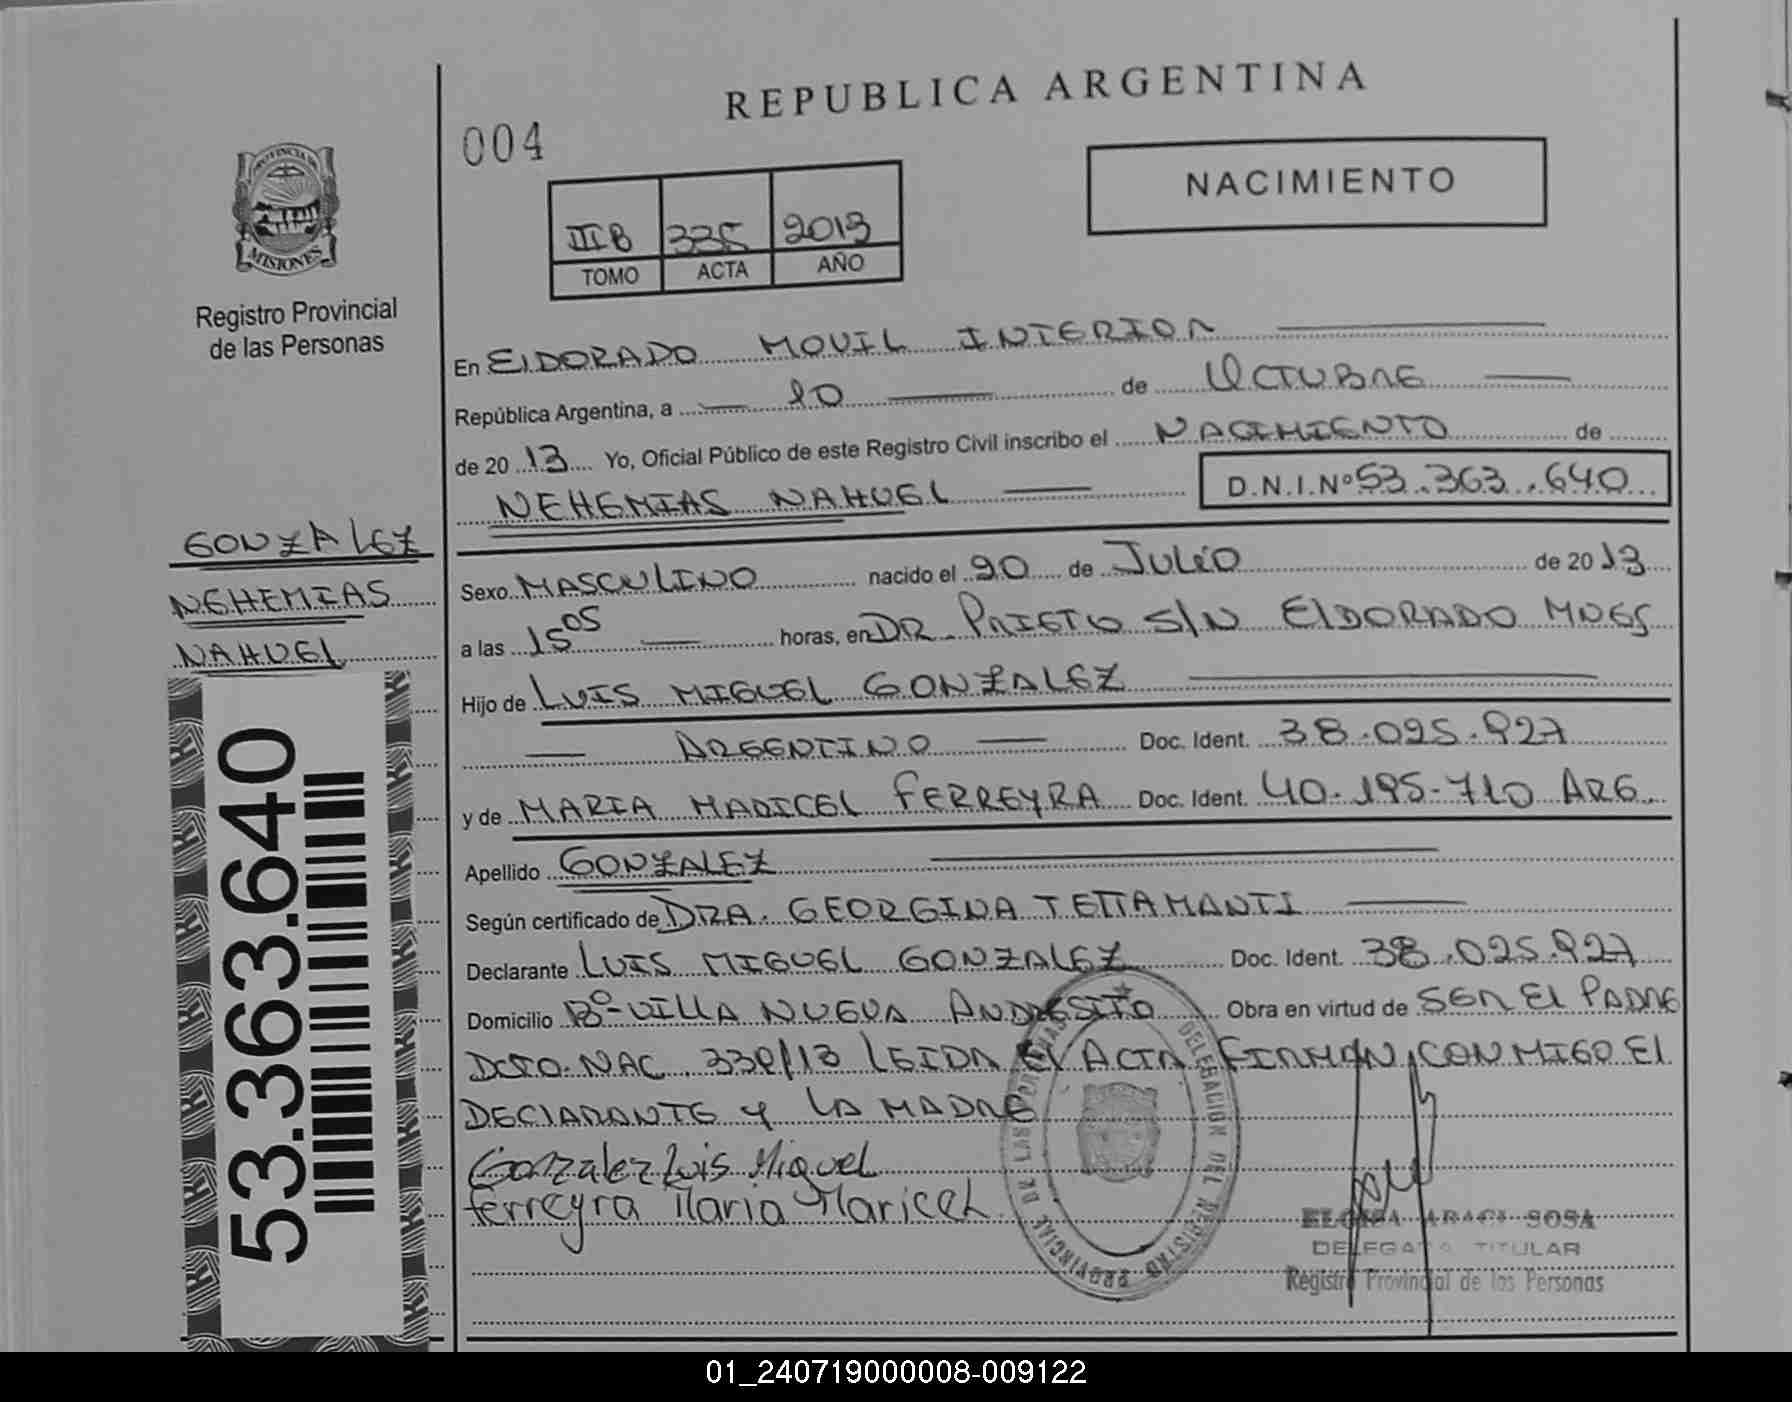 REPUBLICA ARGENTINA
004
NACIMIENTO
III B 335 2013
TOMO ACTA AÑO
PROVINCIA DE
MISIONES
Registro Provincial
de las Personas
En ElDORADO MOVIL INTERIOR
República Argentina, a 10 de OCTUBRE
de 20 13 Yo, Oficial Público de este Registro Civil inscribo el NACIMIENTO de
NEHEMIAS NAHUEL D.N.I.Nº 53.363.640
GONZALEZ
NEHEMIAS
NAHUEL
Sexo MASCULINO nacido el 20 de JULIO de 20 13
a las 15 05 horas, en DR. PRIETO S/N ElDORADO MNES
Hijo de LUIS MIGUEL GONZALEZ
ARGENTINO Doc. Ident. 38.025.927
y de MARIA MARICEL FERREYRA Doc. Ident. 40.195.710 ARG.
Apellido GONZALEZ
Según certificado de DRA. GEORGINA TETTAMANTI
Declarante LUIS MIGUEL GONZALEZ Doc. Ident. 38.025.927
Domicilio Bº VILLA NUEVA ANDRESITO Obra en virtud de SER El PADRE
DCTO. NAC. 339/13 LEIDA El ACTA FIRMAN CONMIGO El
DECLARANTE Y LA MADRE
Gonzalez Luis Miguel
Ferreyra Maria Maricel
53.363.640
DELEGACION DEL REGISTRO PROVINCIAL DE LAS PERSONAS
ARACI SOSA
DELEGADA TITULAR
Registro Provincial de las Personas
01_240719000008-009122